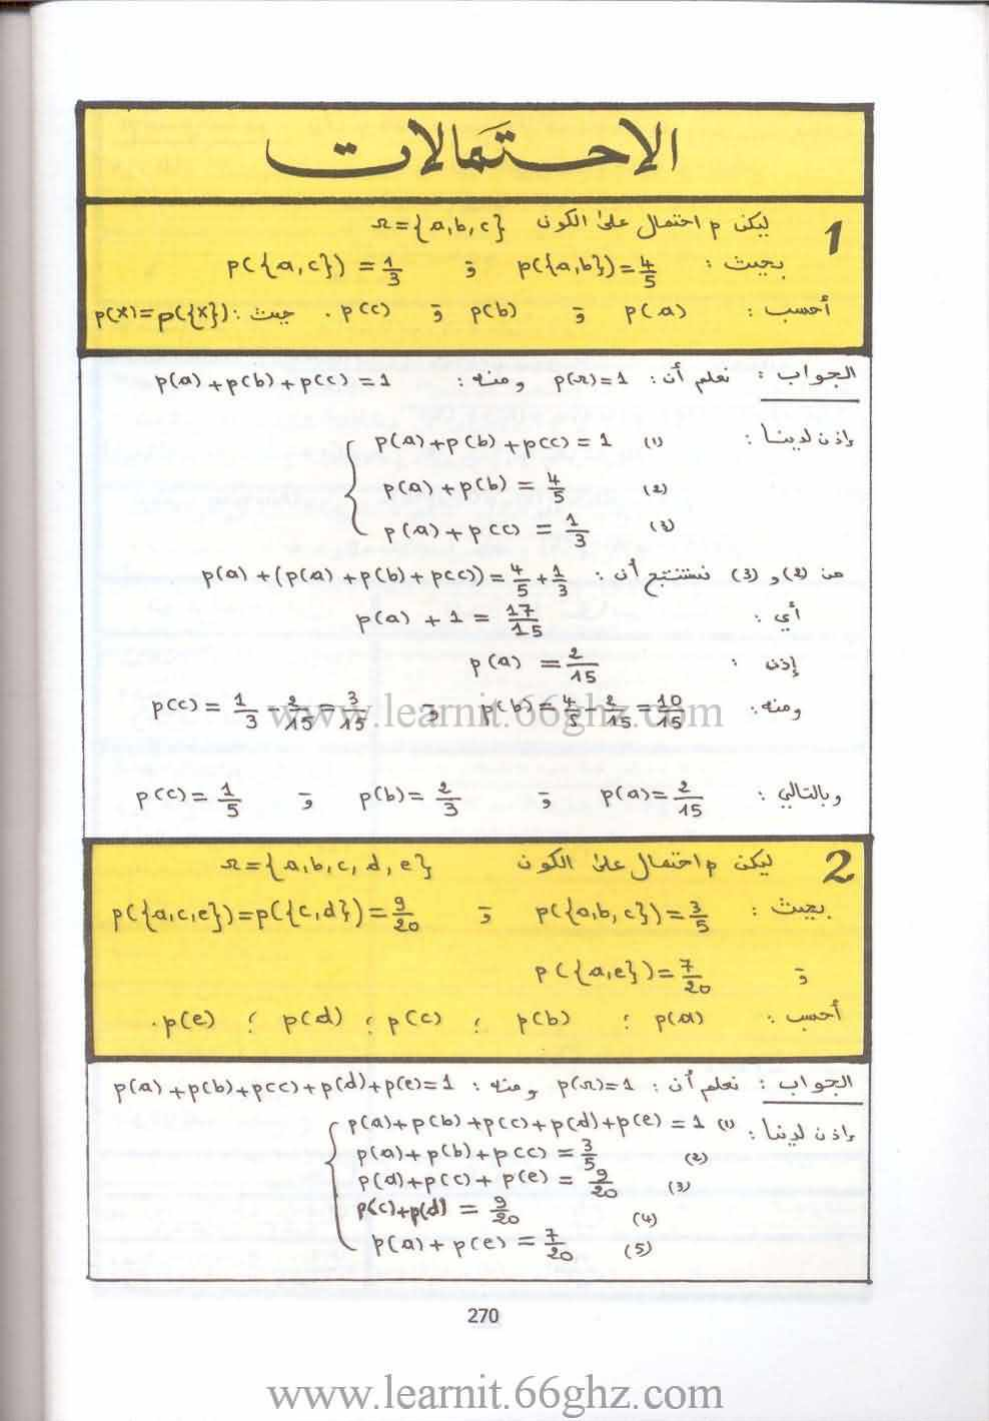 الاحتمالات
1 ليكن p احتمال على الكون Ω={a,b,c}
بحيث : p({a,b})=4/5 و p({a,c})=1/3
أحسب : p(a) و p(b) و p(c) . حيث : p(x)=p({x})
الجواب : نعلم أن : p(Ω)=1 ومنه : p(a)+p(b)+p(c)=1
إذن لدينا : p(a)+p(b)+p(c)=1 (1)
p(a)+p(b)=4/5 (2)
p(a)+p(c)=1/3 (3)
من (2) و (3) نستنتج أن : p(a)+(p(a)+p(b)+p(c))=4/5+1/3
أي : p(a)+1=17/15
إذن : p(a)=2/15
ومنه : p(b)=4/5-2/15=10/15 و p(c)=1/3-2/15=3/15
www.learnit.66ghz.com
وبالتالي : p(a)=2/15 و p(b)=2/3 و p(c)=1/5
2 ليكن p احتمال على الكون Ω={a,b,c,d,e}
بحيث : p({a,b,c})=3/5 و p({a,c,e})=p({c,d})=9/20
و p({a,e})=7/20
أحسب : p(a) ; p(b) ; p(c) ; p(d) ; p(e).
الجواب : نعلم أن : p(Ω)=1 ومنه : p(a)+p(b)+p(c)+p(d)+p(e)=1
إذن لدينا : p(a)+p(b)+p(c)+p(d)+p(e)=1 (1)
p(a)+p(b)+p(c)=3/5 (2)
p(a)+p(c)+p(e)=9/20 (3)
p(c)+p(d)=9/20 (4)
p(a)+p(e)=7/20 (5)
270
www.learnit.66ghz.com